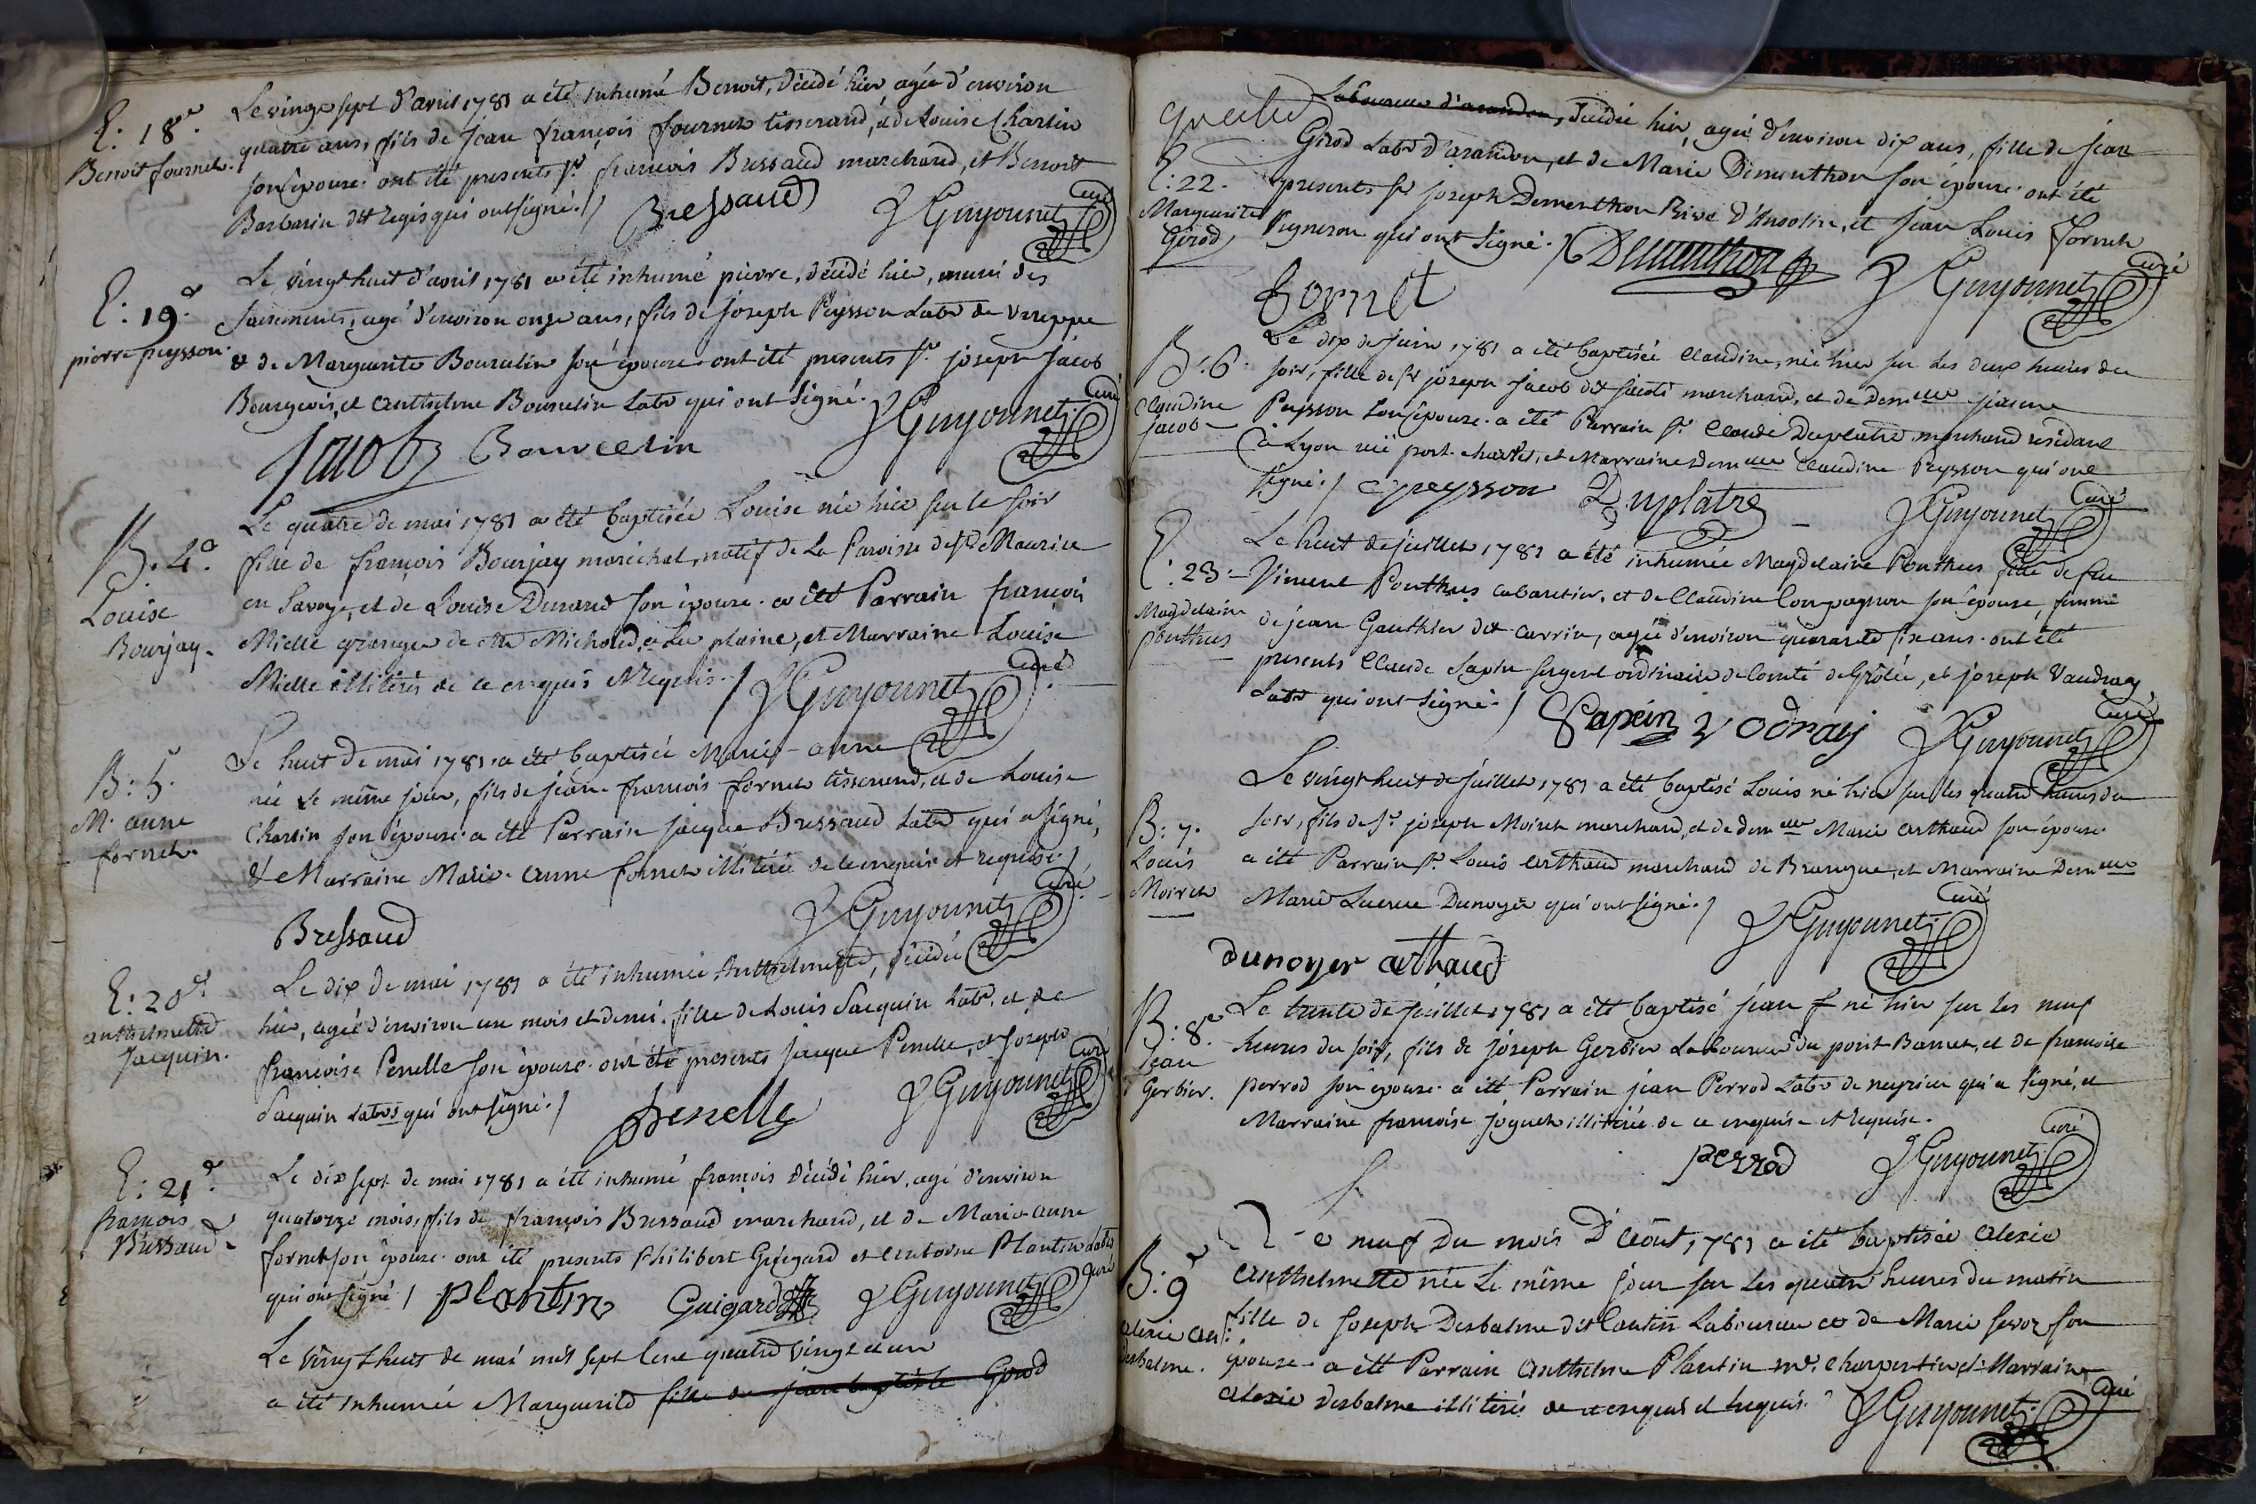 E: 18e.
Benoit fournet.
Le vingt sept d'avril 1781 a été inhumé Benoit, décédé hier agé d'environ
quatre ans, fils de Jean françois fournet tisserand, & de Louise Chartin
son épouse. ont été presents Sr. françois Bressaud marchand, et Benoit
Barbarin dit Regis qui ont signé./
Bressaud J Guyonnet Curé
E: 19e.
pierre peysson.
Le vingt huit d'avril 1781 a été inhumé pierre, décédé hier, muni des
sacrements, agé d'environ onze ans, fils de joseph Peysson Labr de
& de Marguerite Bourcelin son épouse ont été presents Sr. joseph jacob
Bourgeois, et anthelme Bourcelin Labr qui ont signé.
jacob Bourcelin J Guyonnet. Curé
B. 4e.
Louise
Bourjay.
Le quatre de mai 1781 a été baptisée Louise née hier sur le soir
fille de françois Bourjay maréchal, natif de La Paroisse de St Maurice
en Savoye, et de Louise Durand son épouse. a été Parrain françois
Mielle granger de Mr Michoud, a La plaine, et Marraine Louise
Mielle illiterés de ce enquis & Requis./ J Guyonnet Curé
B: 5.
M. anne
fornet.
Le huit de mai 1781. a été baptisée Marie-anne
née Le même jour, fils de jean-françois fornet tisserand, et de Louise
Chartin son épouse. a été Parrain jacque Bressaud Labr qui a signé,
& Marraine Marie-anne fornet illiterée de ce enquise et requise./
Bressaud J Guyonnet Curé
E: 20e.
anthelmette
Jacquin.
Le dix de mai 1781 a été inhumée Anthelmette, décédée
hier, agée d'environ un mois et demi. fille de Louis Jacquin Labr, et de
françoise Penelle son épouse. ont été presents jacque Penelle, et Joseph
Jacquin Labrs qui ont signé./
Penelle J Guyonnet Curé
E: 21e.
françois
Bressaud
Le dix sept de mai 1781 a été inhumé françois décédé hier, agé d'environ
quatorze mois, fils de françois Bressaud marchand, et de Marie-anne
fornet son épouse. ont été presents Philibert Guigard et antoine Plantin Labrs
qui ont signé / Plantin Guigard J Guyonnet Curé
Le vingt huit de mai mil sept cent quatre vingt et un
a été inhumée Marguerite fille de jean baptiste Girod
Laboureur d'arandon, décédée hier, agée d'environ dix ans, fille de jean
Girod Labr d'arandon, et de Marie Dementhon son épouse. ont été
E: 22.
Marguerite
Girod
presents Sr joseph Dementhon et jean Louis fornet
Vigneron qui ont signé./ Dementhon J Guyonnet Curé
fornet
B: 6.
Claudine
jacob
Le dix de juin 1781 a été baptisée Claudine, née hier sur Les deux heures du
soir, fille de Sr joseph jacob dit marchand, et de Demlle
Peysson son épouse. a été Parrain Sr. Claude Duplatre marchand résidant
à Lyon rüe port-charlet, et Marraine Demlle Claudine Peysson qui ont
signé./ C peysson Duplatre J Guyonnet Curé
E: 23.
Magdelaine
Ponthus
Le huit de juillet 1781 a été inhumée Magdelaine Ponthus fille de feu
Vincent Ponthus cabaretier, et de Claudine Compagnon son épouse, femme
de jean Gauthier dit carrin, agée d'environ quarante six ans. ont été
presents Claude Sapin sergent ordinaire de Comté de Grolée, et joseph Vaudray
Labr qui ont signé./ Sapin Vodray J Guyonnet Curé
B: 7.
Louis
Moiret
Le vingt huit de juillet 1781 a été baptisé Louis né hier sur les quatre heures du
soir, fils de Sr. joseph Moiret marchand, et de demlle Marie arthaud son épouse.
a été Parrain Sr. Louis arthaud marchand de Brangue, et Marraine Demlle
Marie Dunoyer qui ont signé./ J Guyonnet Curé
dunoyer arthaud
B: 8e.
Jean
Gerbier.
Le trente de juillet 1781 a été baptisé jean f né hier sur les neuf
heures du soir, fils de joseph Gerbier Laboureur du port-Barret, et de françoise
perrod son épouse. a été Parrain jean Perrod Labr de neyrieu qui a signé, et
Marraine françoise joguet illiterée de ce enquise et Requise.
perrod J Guyonnet Curé
B: 9e
alexie an
desbalme.
Le neuf du mois D'août, 1781 a été baptisée alexie
Anthelmette née le même jour sur Les quatre heures du matin
fille de joseph Desbalme dit Cantin Laboureur et de Marie son
épouse. a été Parrain anthelme Plantin mr. charpentier, et Marraine
alexie desbalme illiterés de ce enquis et requis. J Guyonnet. Curé